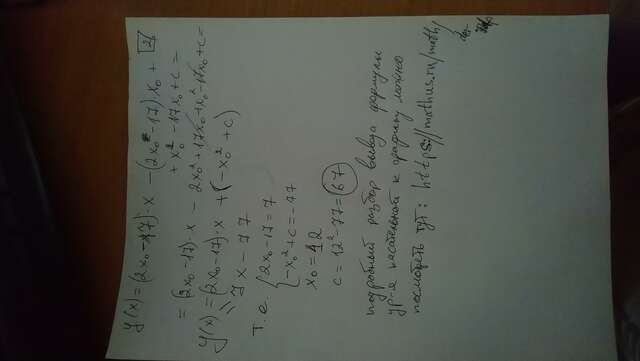 2
y(x) = (2x₀-17)·x - (2x₀-17)x₀ +
+ x₀² - 17x₀ + c =
= (2x₀-17)·x - 2x₀² + 17x₀ + x₀² - 17x₀ + c =
y(x) = (2x₀-17)·x + (-x₀² + c)
7x - 77
т.е. { 2x₀ - 17 = 7
{ -x₀² + c = -77
x₀ = 12
c = 12² - 77 = 67
подробный разбор вывода формулы
ур-я касательной к графику можно
посмотреть тут: https://mathus.ru/math/